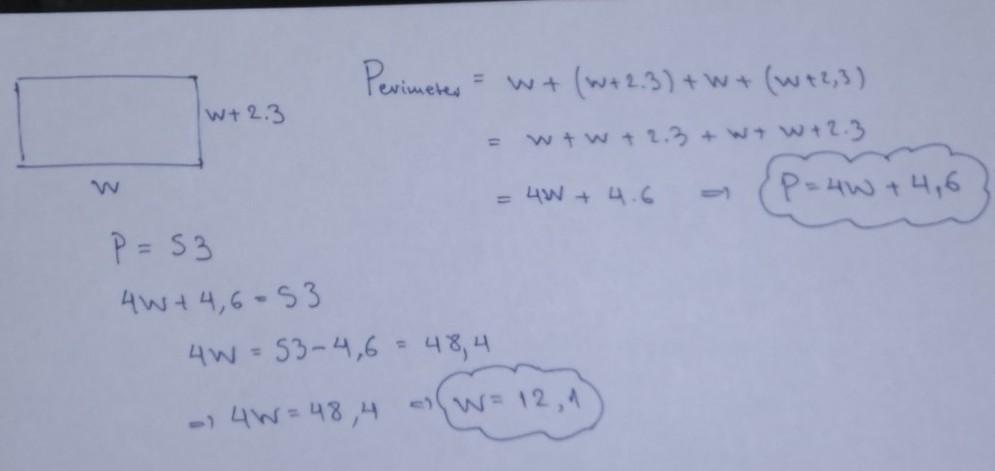 Perimeter = w + (w+2.3) + w + (w+2,3)
w+2.3
= w + w + 2.3 + w + w+2.3
w
= 4w + 4.6 => P = 4w + 4,6
P = 53
4w + 4,6 = 53
4w = 53-4,6 = 48,4
=> 4w = 48,4 => w = 12,1